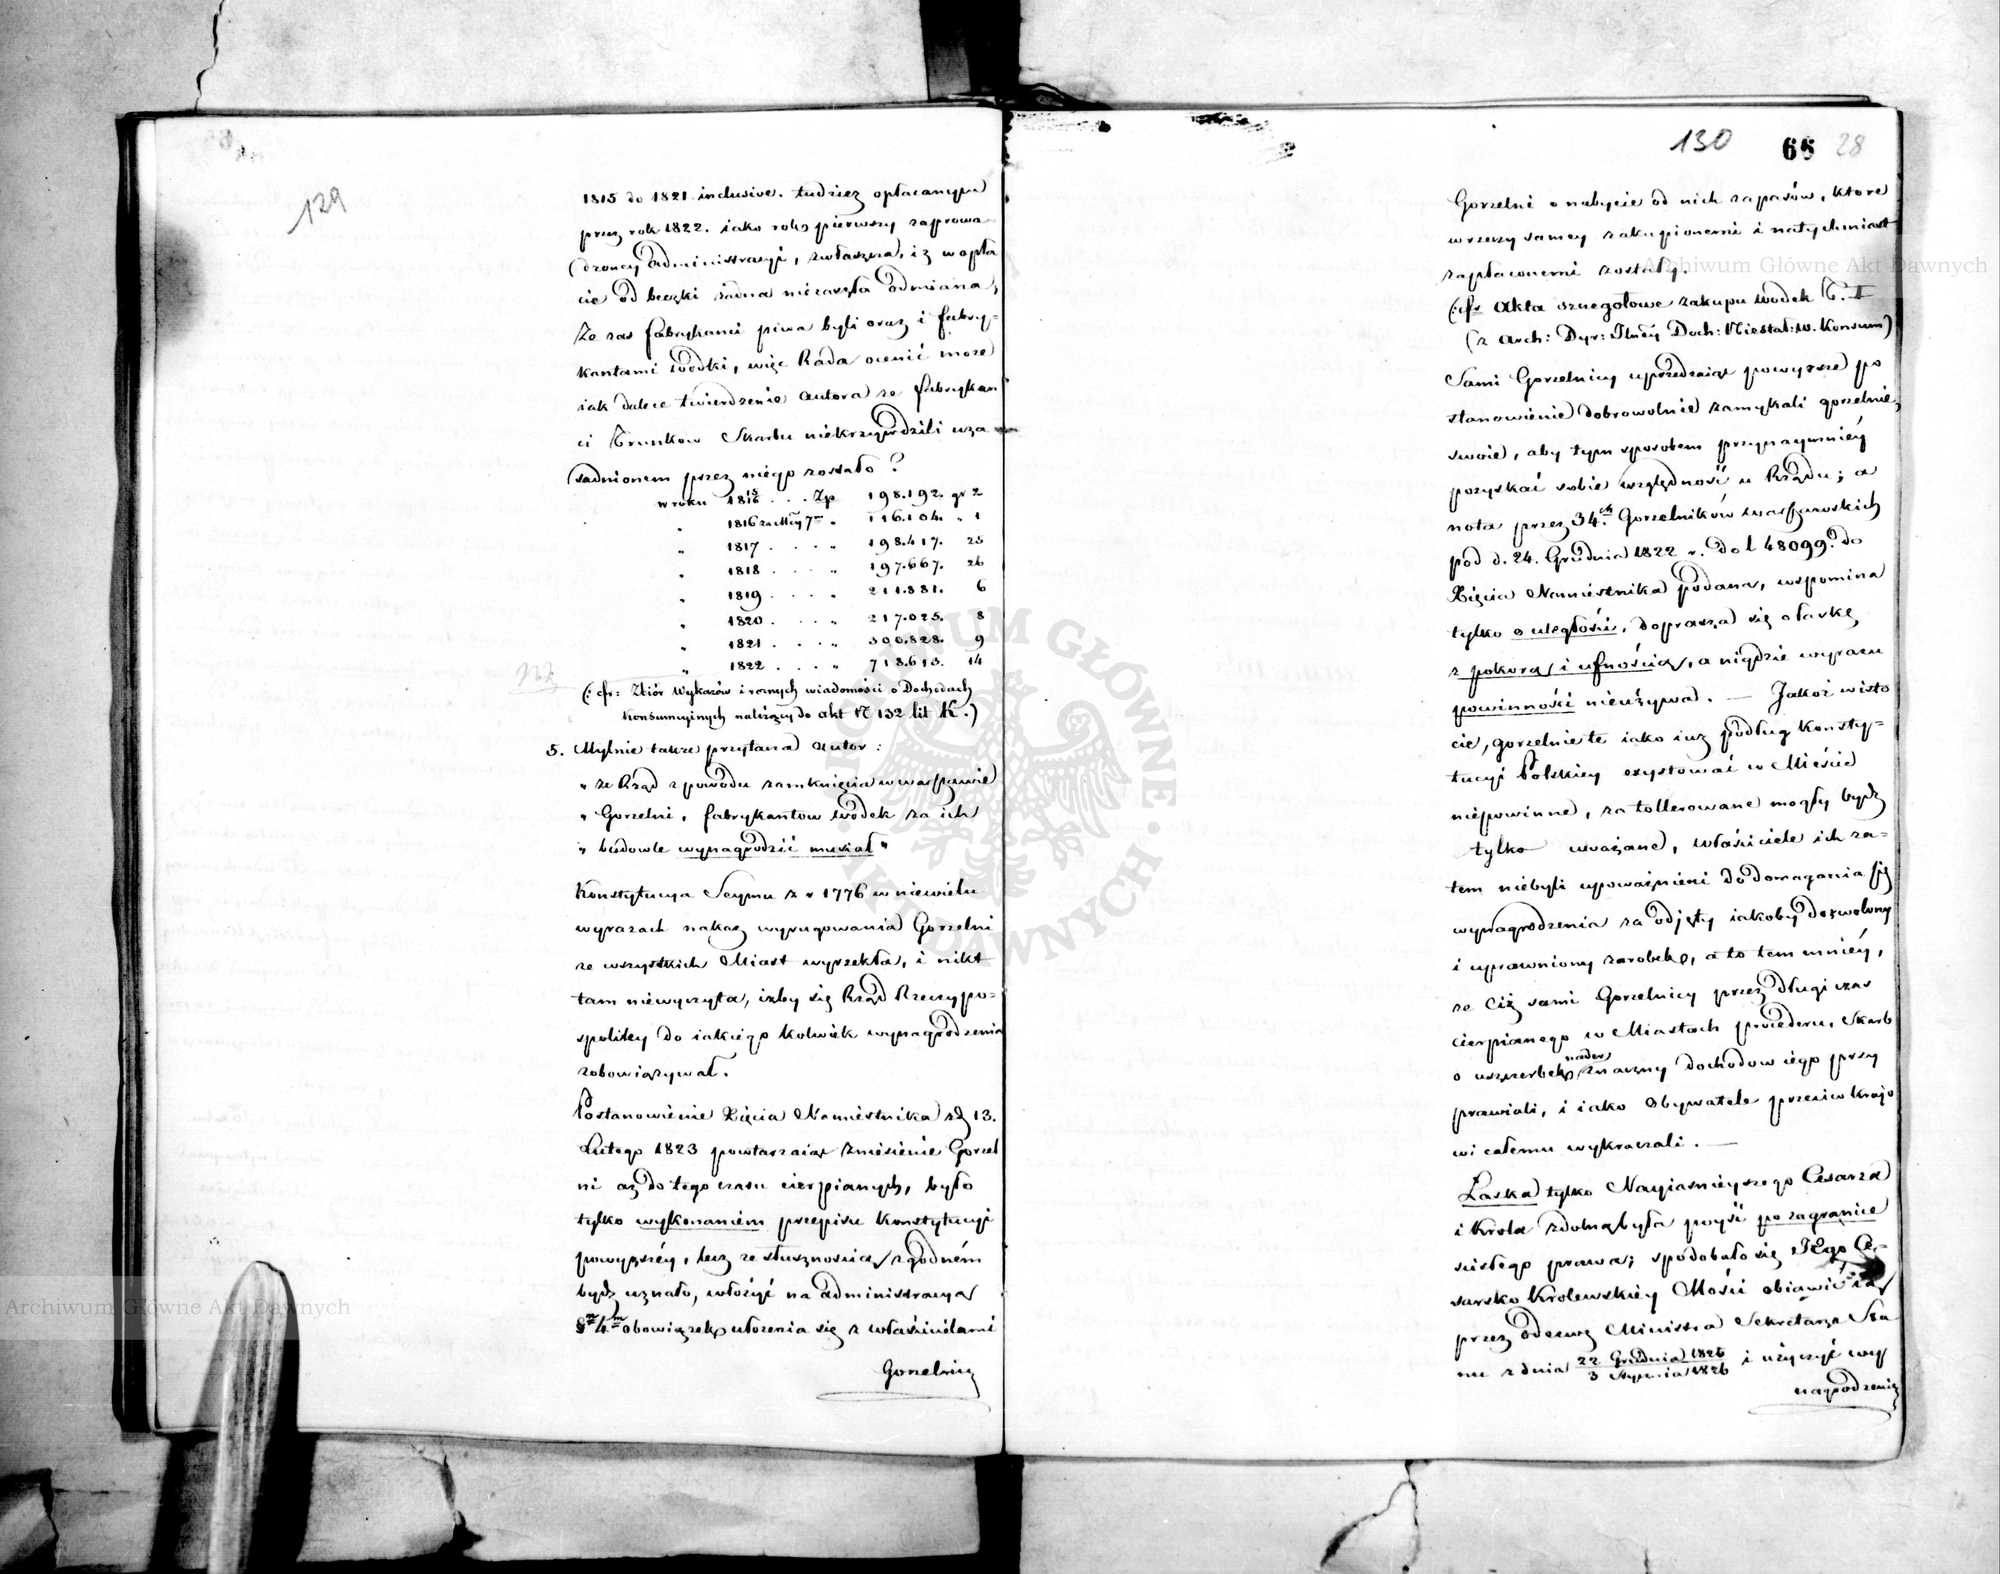 129
1815 do 1821 inclusive. tudzież opłacanym
przez rok 1822. iako roku pierwszy zaprowa-
dzoney administracyi, zwłaszcza, iż w opła
cie od beczki żadna niezaszła odmiana,
Że zaś fabrykanci piwa byli oraz i fabry-
kantami wódki, więc Rada ocenić może
iak dalece twierdzenie autora że fabrykan
ci Trunkow Skarbu niekrzywdzili uza
sadnionem przez niego zostało?
w roku 1815 . . . Zp 198.192. gr 2
" 1816 za Mcy 7 " 116.104. " 1
" 1817 . . . . " 198.417. 25
" 1818 . . . . " 197.667. 26
" 1819 . . . . " 211.881. 6
" 1820 . . . . " 217.025. 8
" 1821 . . . . " 300.828. 9
" 1822 . . . . " 718.613. 14
(: cfr: Zbiór Wykazów i rocznych wiadomości o Dochodach
Konsumcyinych należący do akt N 132 lit K.)
5. Mylnie także przytacza autor:
" że Rząd z powodu zamknięcia w Warszawie
" Gorzelni, fabrykantow wódek za ich
" budowle wynagrodzić musiał "
Konstytucya Seymu z r 1776 w niewielu
wyrazach nakaz wyrugowania Gorzelni
ze wszystkich Miast wyrzekła, i nikt
tam niewyczyta, iżby się Rząd Rzeczypo=
spolitey do iakiego kolwiek wynagrodzenia
zobowiązywał.
Postanowienie Xięcia Namiestnika z d 13.
Lutego 1823 powtarzaiąc zniesienie Gorzel
ni aż do tego czasu cierpianych, było
tylko wykonaniem przepisu Konstytucyi
powyższéy, lecz ze słusznością zgodném
bydź uznało, włożyć na administracyą
§ 4 obowiązek ułożenia się z właścicielami
Gorzelnicy
130 68 28
Gorzelni o nabycie od nich zapasów, które
w rzeczy samey zakupionemi i natychmiast
zapłaconemi zostały.
(: cfr Akta szczegołowe zakupu wódek T. I
(z Arch: Dyr: Jlnéy Doch: Niestał: w. Konsum)
Sami Gorzelnicy uprzedzaiąc powyższe po
stanowienie dobrowolnie zamykali gorzelnie
swoie, aby tym sposobem przynaymniéy
pozyskać sobie względność u Rządu; a
nota przez 34. Gorzelników warszawskich
pod d. 24. Grudnia 1822 r. Do l 48099. do
Xięcia Namiestnika podana, wspomina
tylko o uległości, doprasza się o łaskę
z pokorą i ufnością, a nigdzie wyrazu
powinności nieużywa. — Jakoż w isto
cie, gorzelnie te iako iuż podług Konsty=
tucyi Polskiey exystować w Mieście
niepowinne, za tollerowane mogły bydź
tylko uważane, właściciele ich za-
tem niebyli upoważnieni do domagania się
wynagrodzenia za odjęty iakoby dozwolony
i uprawniony zarobek, a to tem mniéy,
że Ciż sami Gorzelnicy przez długi czas
cierpianego w Miastach procederu, Skarb
o uszczerbek nader znaczny dochodow iego przy
prawiali, i iako Obywatele przeciw krajo
wi całemu wykraczali. —
Łaska tylko Nayiaśnieyszego Cesarza
i Krola zdolną była poyść po za granice
ścisłego prawa; spodobało się JEgo Ce-
sarsko Krolewskiéy Mości obiawić ią
przez odezwę Ministra Sekretarza Sta
nu z dnia 22 Grudnia 1825 / 3 Stycznia 1826 i użyczyć wy
nagrodzenie
Archiwum Główne Akt Dawnych
Archiwum Główne Akt Dawnych
ARCHIWUM GŁÓWNE AKT DAWNYCH